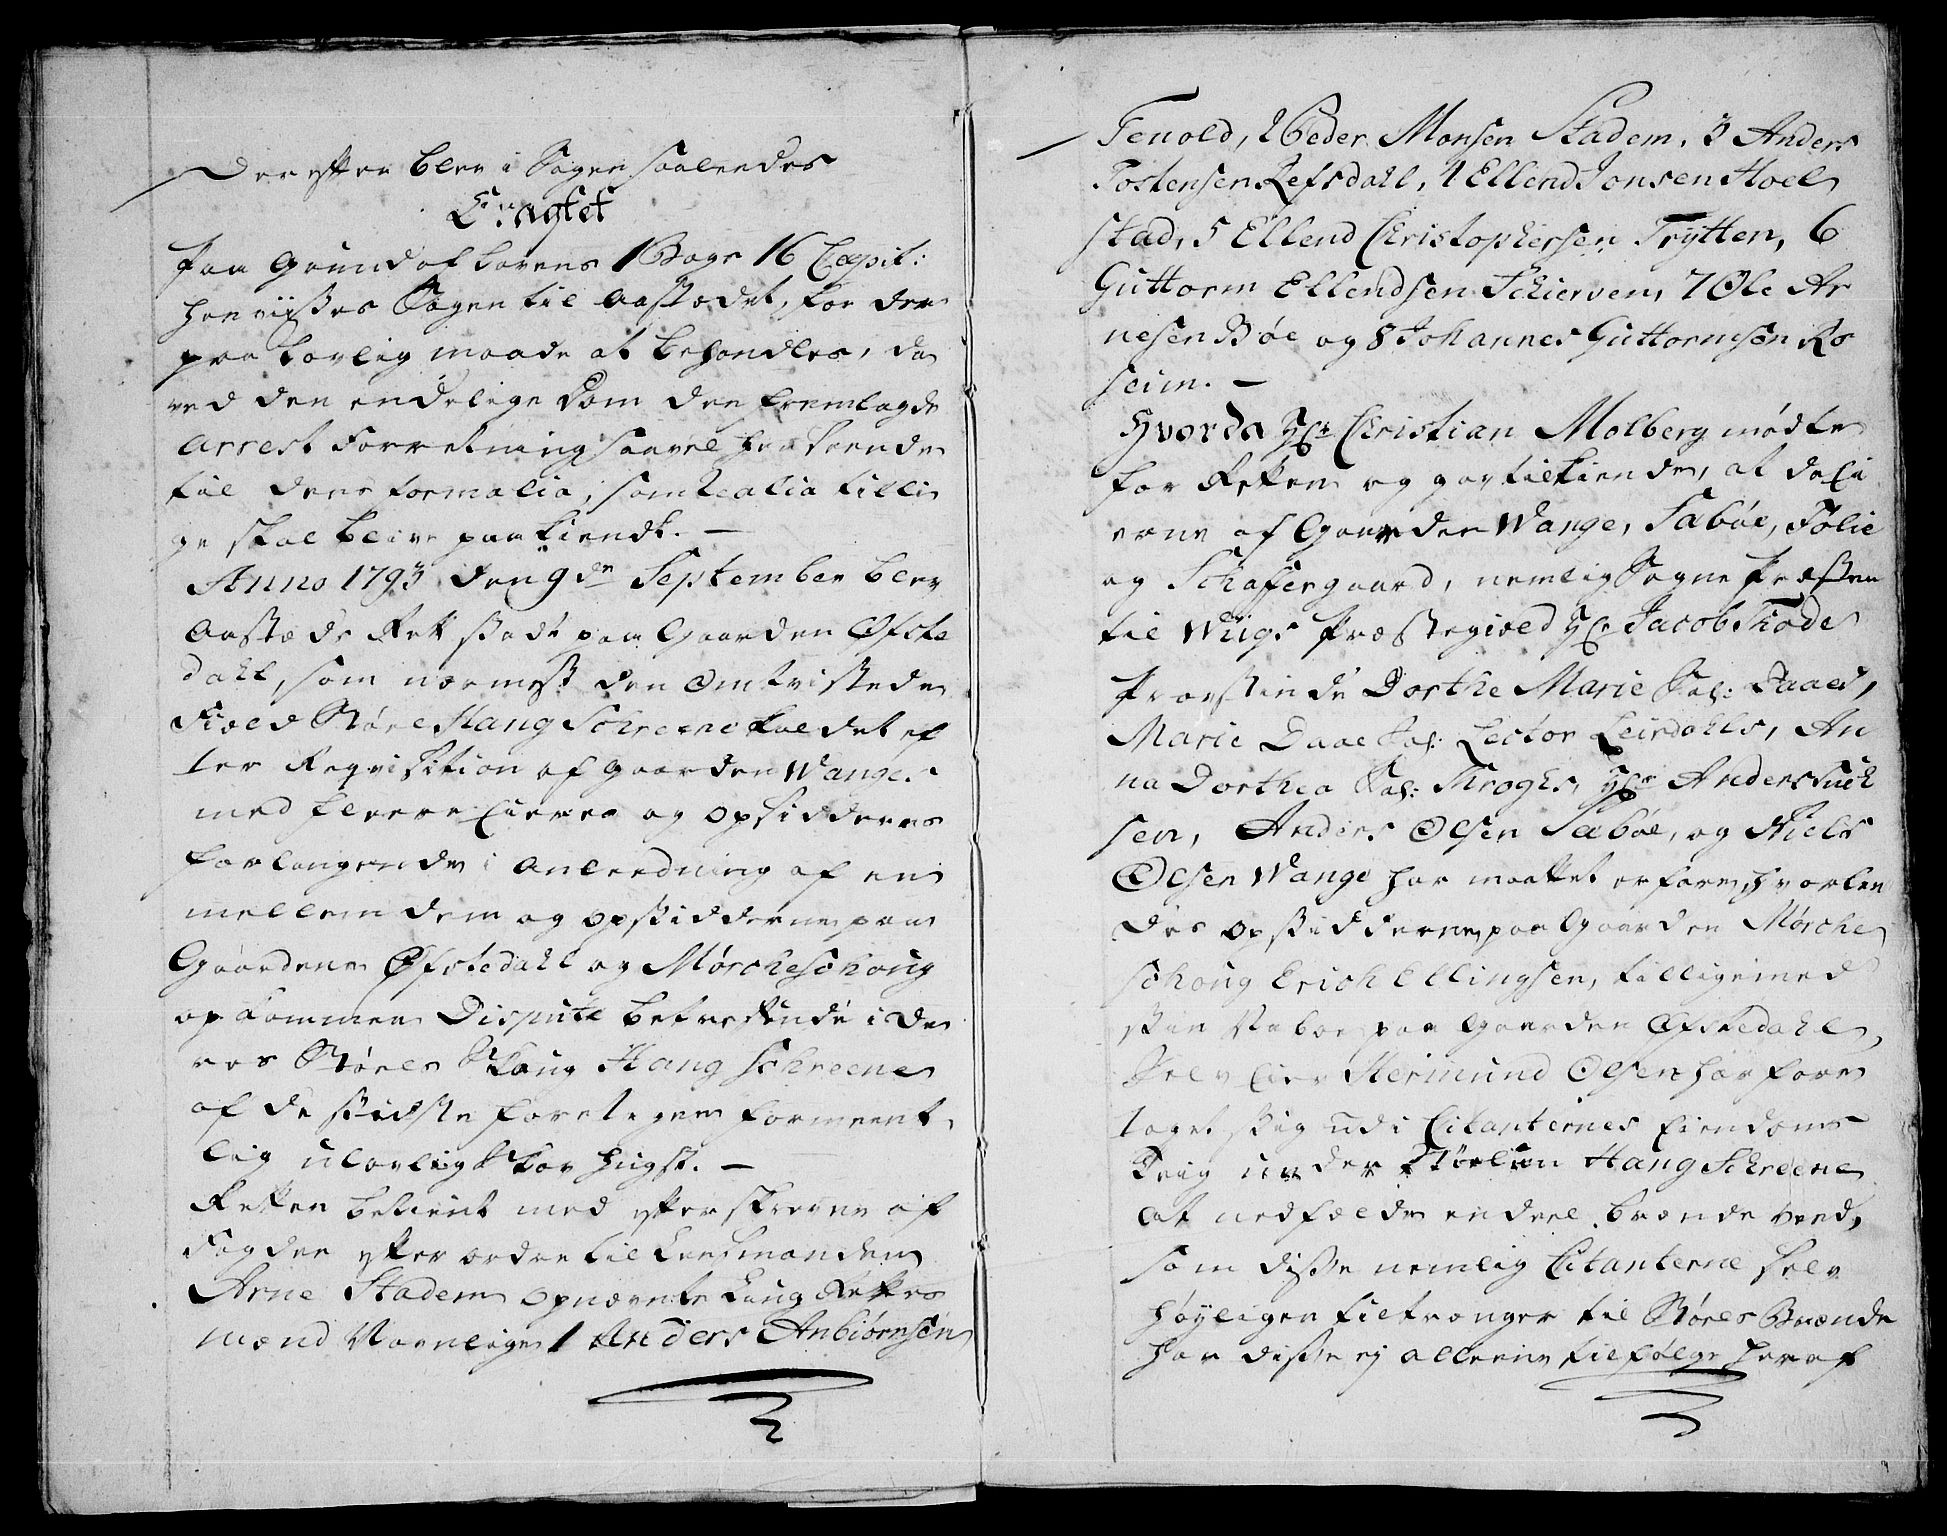 Derefter blev i Sagen saaledes
Eragtet
paa Grund af Lovens 1 Bogs 16 Capit:
henviises Sagen til Aastædet, for der
paa lovlig maade at behandles, da
ved den endelige Dom den fremlagde
Arrest Forretning saavel henseende
til dens formalia, som realia tilli
ge skal blive paakiendt. —
Anno 1793 den 9de September blev
Aastæds Ret sadt paa Gaarden Øfste
dahl, som nærmest den Omtvistede
Field Støel Hang Schreene kaldet ef
ter Reqvisition af Gaarden Wanges
med fleere Eieres og Opsidderes
forlangende i Anleedning af en
mellem dem og Opsidderne paa
Gaardene Øfstedahl og Mørcheschoug
opkommen Dispute betreffende i de
res Støels Skoug Hang Schreene
af de sidste foretagen formeent
lig ulovlig Skov hugst. —
Retten betient med efterskrevne af
Fogden efter ordre til Lensmanden
Arne Stadem Opnævnte Laug Rettes
mænd Navnligen 1 Anders Anbiørnsen
Tenold, 2 Peder Monsen Stadem, 3 Anders
Tostensen Refsdahl, 4 Ellend Jonsen Hoel
stad, 5 Ellend Christophersen Trytten, 6
Guttorm Ellendsen Schierven, 7 Ole Ar
nesen Bøe og 8 Johannes Guttormsen Ro
seim. —
Hvorda Hr Christian Molberg mødte
for Retten og gav tilkiende, at da Ei
erne af Gaarden Wange, Sabøe, Følie
og Schaffergaard, nemlig Sogne Præsten
til Wiigs Præstegield Hr Jacob Thode
Provstinde Dorthe Marie Sal: Daaes,
Marie Daae Sal: Lector Leirdahls, An
na Dorthea Sal: Kroghs, Hr Anders
sen, Anders Olsen Sabøe, og Niels
Olsen Wange har maattet erfare, hvorlen
des Opsidderne paa Gaarden Mørche
schoug Erich Ellingsen, tilligemed
sin Naboe paa Gaarden Øfstedahl,
Selv Eier Hermund Olsen har fore
taget sig udi Citanternes Eiendoms
Teig under Støelen Hang Schreene
at nedfælde en deel brænde veed,
som disse nemlig Citanterne selv
høyligen tiltrænger til Støels Brænde
har disse ej alleene tilfølge heraf